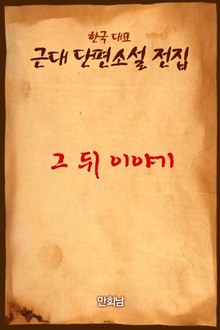 한국 대표
근대 단편소설 전집
그 뒤 이야기
안회남